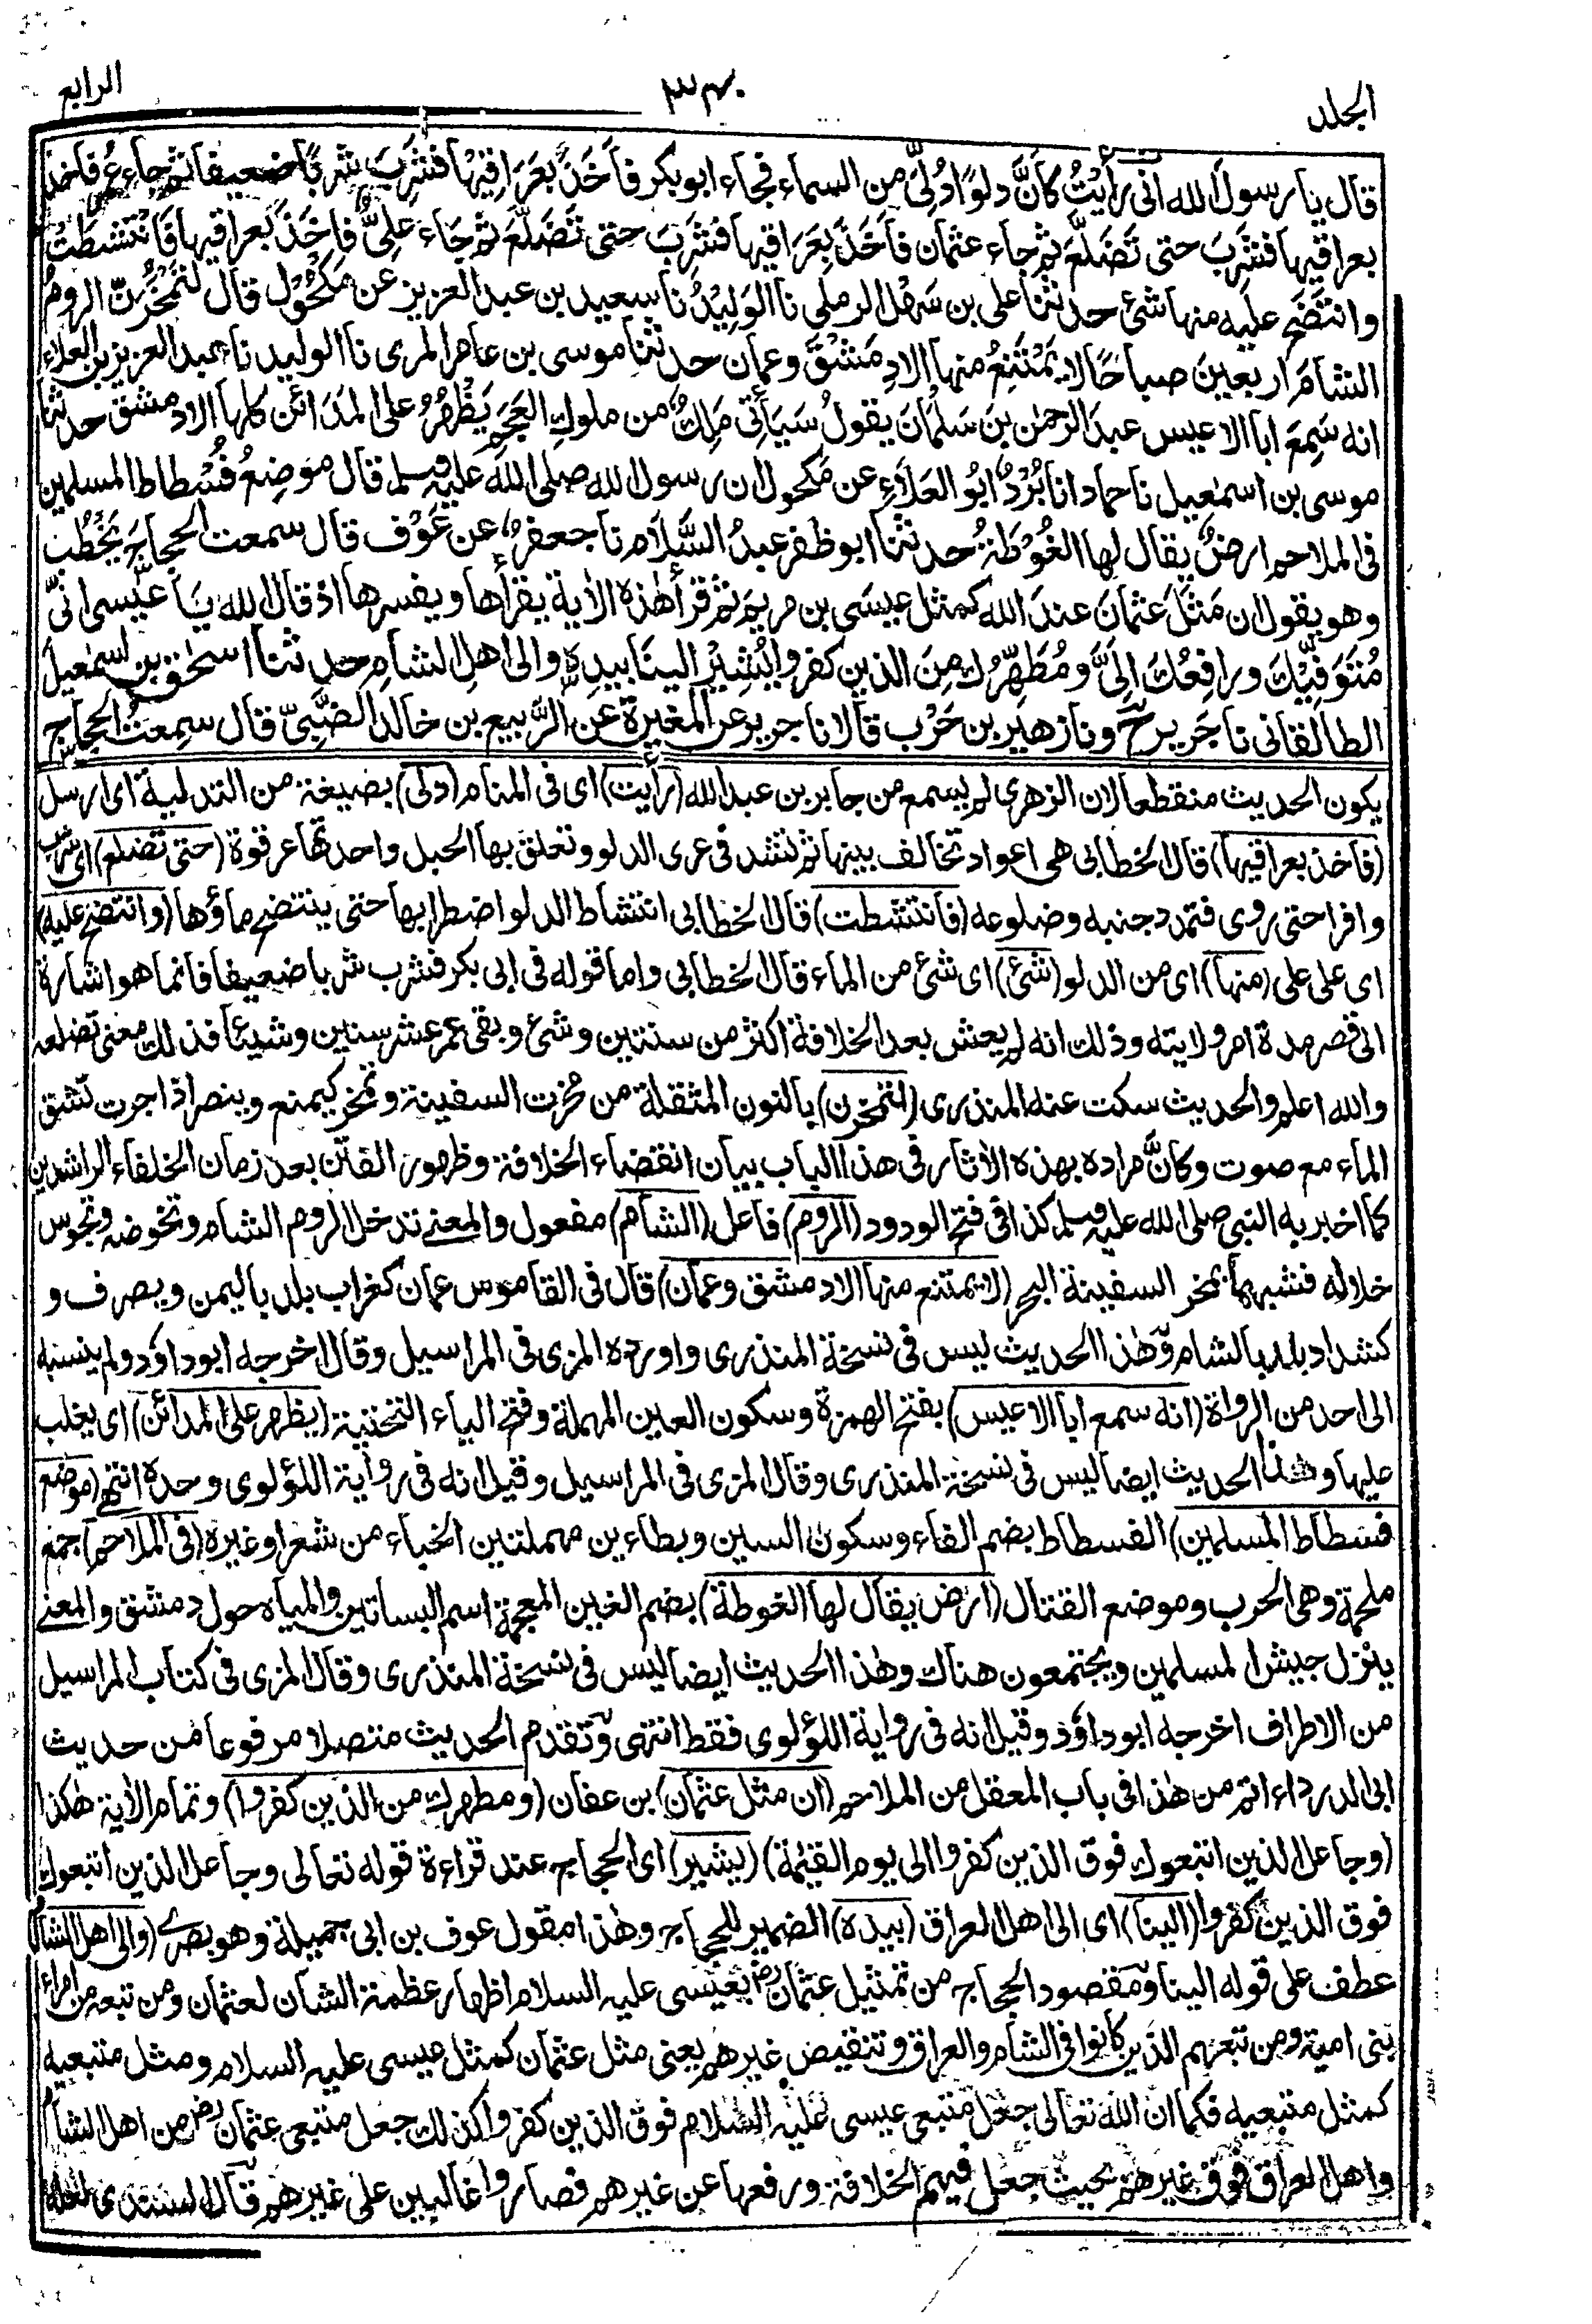 الجلد ٣٤٠ الرابع
قال يا رسول الله انى رَأَيْتُ كَأَنَّ دلوًا دُلِّىَ من السماء فجاء ابو بكر فَاَخَذَ بِعَرَاقِيْهَا فشَرِبَ شُربًا ضعيفا ثم جاء عُمر فاخذ
بعراقيها فشَرِبَ حتى تَضَلَّعَ ثم جاء عثمان فَاَخَذَ بِعَرَاقيها فشَرِبَ حتى تَضَلَّعَ ثم جَاء عَلِىٌّ فاَخَذَ بعراقيها فَانْتَشَطَتْ
وانتَضَحَ عليه منها شئ حدثنا على بن سَهْل الرملى نا الوَلِيْدُ نا سعيد بن عبد العزيز عن مكْحُوْل قال لتَمْخُرَنّ الرومُ
الشامَ اربعينَ صباحًا لا يَمْتَنِعُ منها الا دِمَشْقَ وعمان حدثنا موسى بن عامر المرى نا الوليد نا عبد العزيز بن العلاء
انه سَمِعَ ابا الاعيس عبدَ الرحمٰن بنَ سَلْمَانَ يقولُ سَيَأْتِى مَلِكٌ من ملوكِ العَجَمِ يَظْهَرُ على المَدَائن كلها الا دمشق حدثنا
موسى بن اسمٰعيل نا حماد انا بُرْدٌ ابُو العَلَاءِ عن مَكحول ان رسول الله صلى الله عليه وسلم قال مَوْضِعُ فُسْطاط المسلمين
فى الملاحم ارضٌ يقال لها الغُوْطَةُ حدثنا ابو ظفر عبدُ السَّلَام نا جعفرٌ عن عَوْف قال سمعت الحجاجَ يَخْطُبُ
وهو يقول ان مَثَلَ عثمَانَ عندَ الله كمثل عيسَى بن مريم ثم قرأ هٰذه الاٰية يقرَأُها ويفسرها اذ قال الله يَا عِيْسى اِنّى
مُتَوَفِّيْكَ ورافِعُكَ اِلَىَّ ومُطَهِّرُك مِنَ الذين كفروا يُشِيْرُ الينا بيدِه والى اهل الشام حدثنا اسحٰق بن اسمٰعيل
الطالقانى نا جَرير ح ونا زهير بن حَرْب قالا نا جرير عن المغيرة عن الرَّبيع بن خالد الضَّبِّىّ قال سمِعتُ الحجاج
يكون الحديث منقطعا لان الزهرى لم يسمع من جابر بن عبد الله (رأيت) اى فى المنام (دلى) بصيغة من التدلية اى ارسل
(فاخذ بعراقيها) قال الخطابى هى اعواد تخالف بينها ثم تشد فى عرى الدلو وتعلق بها الحبل واحدتها عرقوة (حتى تضلع) اى شرب
وافرا حتى روى فتمدد جنبه وضلوعه (فانتشطت) قال الخطابى انتشاط الدلو اضطرابها حتى ينتضح ماؤها (وانتضح عليه)
اى على على (منها) اى من الدلو (شئ) اى شئ من الماء قال الخطابى واما قوله فى ابى بكر فشرب شربا ضعيفا فانما هو اشارة
الى قصر مدة امر ولايته وذلك انه لم يعش بعد الخلافة اكثر من سنتين وشئ وبقى عمر عشر سنين وشيئا فذلك معنى تضلعه
والله اعلم والحديث سكت عنه المنذرى (لتمخرن) بالنون المثقلة من مخرت السفينة وتمخر كيمنع وينصر اذا جرت تشق
الماء مع صوت وكانَّ مراده بهذه الاٰثار فى هذا الباب بيان انقضاء الخلافة وظهور الفتن بعد زمان الخلفاء الراشدين
كما اخبر به النبى صلى الله عليه وسلم كذا فى فتح الودود (الروم) فاعل (الشام) مفعول والمعنے تدخل الروم الشام وتخوضه وتجوس
خلاله فشبهها بمخر السفينة البحر (لا يمتنع منها الا دمشق وعمان) قال فى القاموس عمان كغراب بلد باليمن ويصرف و
كشداد بلد بالشام وهٰذا الحديث ليس فى نسخة المنذرى واورده المزى فى المراسيل وقال اخرجه ابو داؤد ولم ينسبه
الى احد من الرواة (انه سمع ابا الاعيس) بفتح الهمزة وسكون العين المهملة وفتح الياء التحتية (يظهر على المدائن) اى يغلب
عليها وهذا الحديث ايضا ليس فى نسخة المنذرى وقال المزى فى المراسيل وقيل انه فى رواية اللؤلوى وحده انتهے (موضع
فسطاط المسلمين) الفسطاط بضم الفاء وسكون السين وبطاءين مهملتين الخباء من شعر او غيره (فى الملاحم) جمع
ملحمة وهى الحرب وموضع القتال (ارض يقال لها الغوطة) بضم الغين المعجمة اسم البساتين والمياه حول دمشق والمعنے
ينزل جيش المسلمين ويجتمعون هناك وهٰذا الحديث ايضا ليس فى نسخة المنذرى وقال المزى فى كتاب المراسيل
من الاطراف اخرجه ابو داؤد وقيل انه فى رواية اللؤلوى فقط انتهى وتقدم الحديث متصلا مرفوعا من حديث
ابى الدرداء اتم من هٰذا فى باب المعقل من الملاحم (ان مثل عثمان) بن عفان (ومطهرك من الذين كفروا) وتمام الاٰية هٰكذا
(وجاعل الذين اتبعوك فوق الذين كفروا الى يوم القيٰمة) (يشير) اى الحجاج عند قراءة قوله تعالى وجاعل الذين اتبعوك
فوق الذين كفروا (الينا) اى الى اهل العراق (بيده) الضمير للحجاج وهٰذا مقول عوف بن ابى جميلة وهو بصرے (والى اهل الشام)
عطف على قوله الينا ومقصود الحجاج من تمثيل عثمان رض بعيسى عليه السلام اظهار عظمة الشان لعثمان ومن تبعه من امراء
بنى امية ومن تبعهم الذين كانوا فى الشام والعراق وتنقيص غيرهم يعنى مثل عثمان كمثل عيسى عليه السلام ومثل متبعيه
كمثل متبعيه فكما ان الله تعالى جعل متبعى عيسى عليه السلام فوق الذين كفروا كذلك جعل متبعى عثمان رض من اهل الشام
واهل العراق فوق غيرهم بحيث جعل فيهم الخلافة ورفعها عن غيرهم فصاروا غالبين على غيرهم قال السندى لعله